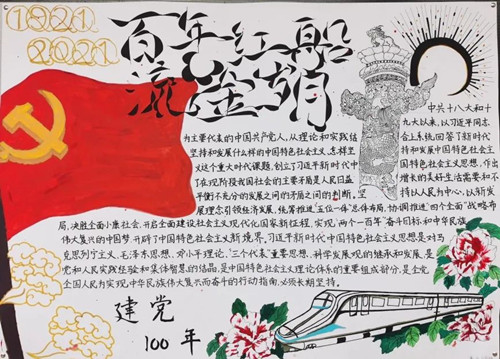 1921
2021
百年红船
流金岁月
中共十八大和十
为主要代表的中国共产党人,从理论和实践结
九大以来,以习近平同志
合上系统回答了新时代
坚持和发展什么样的中国特色社会主义,怎样坚
持和发展中国特色社会主
义这个重大时代课题,创立了习近平新时代中
国特色社会主义思想,作出
在现阶段我国社会的主要矛盾是人民日益
增长的美好生活需要和不
平衡不充分的发展之间的矛盾之间的判断,坚
持以人民为中心,以新发
展理念引领经济发展,统筹推进"五位一体"总体布局,协调推进"四个全面"战略布
局,决胜全面小康社会,开启全面建设社会主义现代化国家新征程,实现"两个一百年"奋斗目标和中华民族
伟大复兴的中国梦,开辟了中国特色社会主义新境界,习近平新时代中国特色社会主义思想是对马
克思列宁主义、毛泽东思想、邓小平理论、"三个代表"重要思想、科学发展观的继承和发展,是
党和人民实践经验和集体智慧的结晶,是中国特色社会主义理论体系的重要组成部分,是全党
全国人民为实现中华民族伟大复兴而奋斗的行动指南,必须长期坚持。
建党
100年